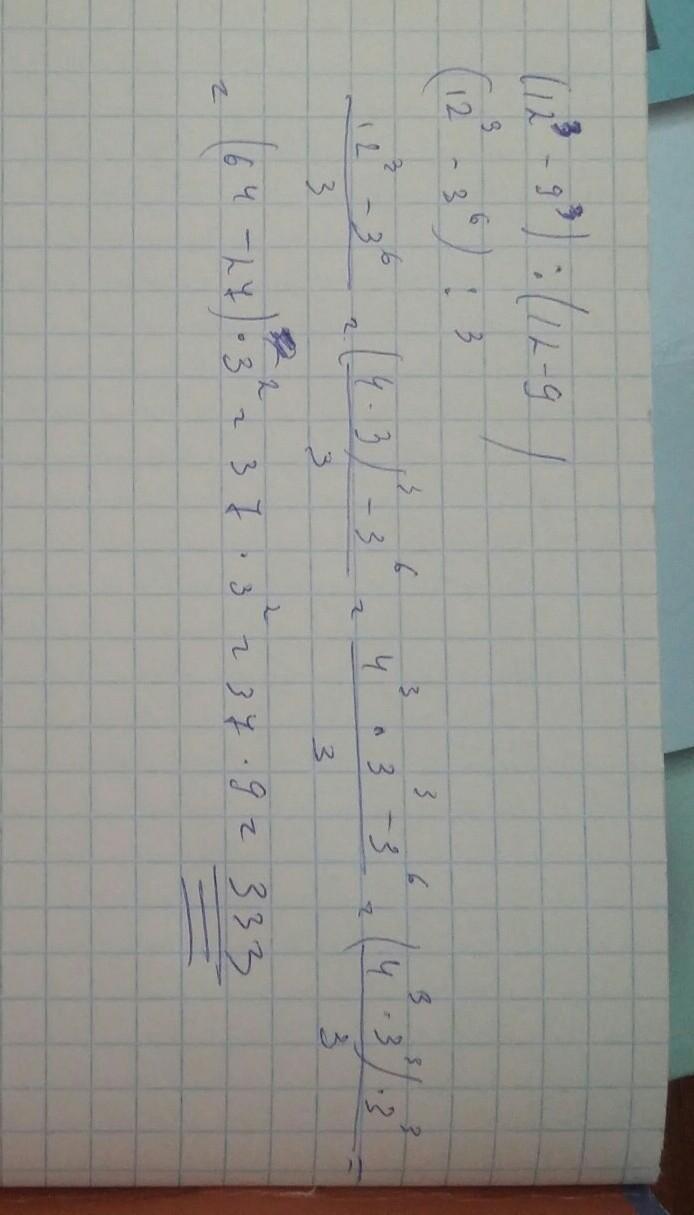 (12³ - 9³) : (12 - 9)
(12³ - 3⁶) : 3
(12³ - 3⁶)/3 = ((4·3)³ - 3⁶)/3 = (4³·3³ - 3⁶)/3 = ((4³·3³)·3³)/3 =
= (64 - 27)·3² = 37·3² = 37·9 = 333